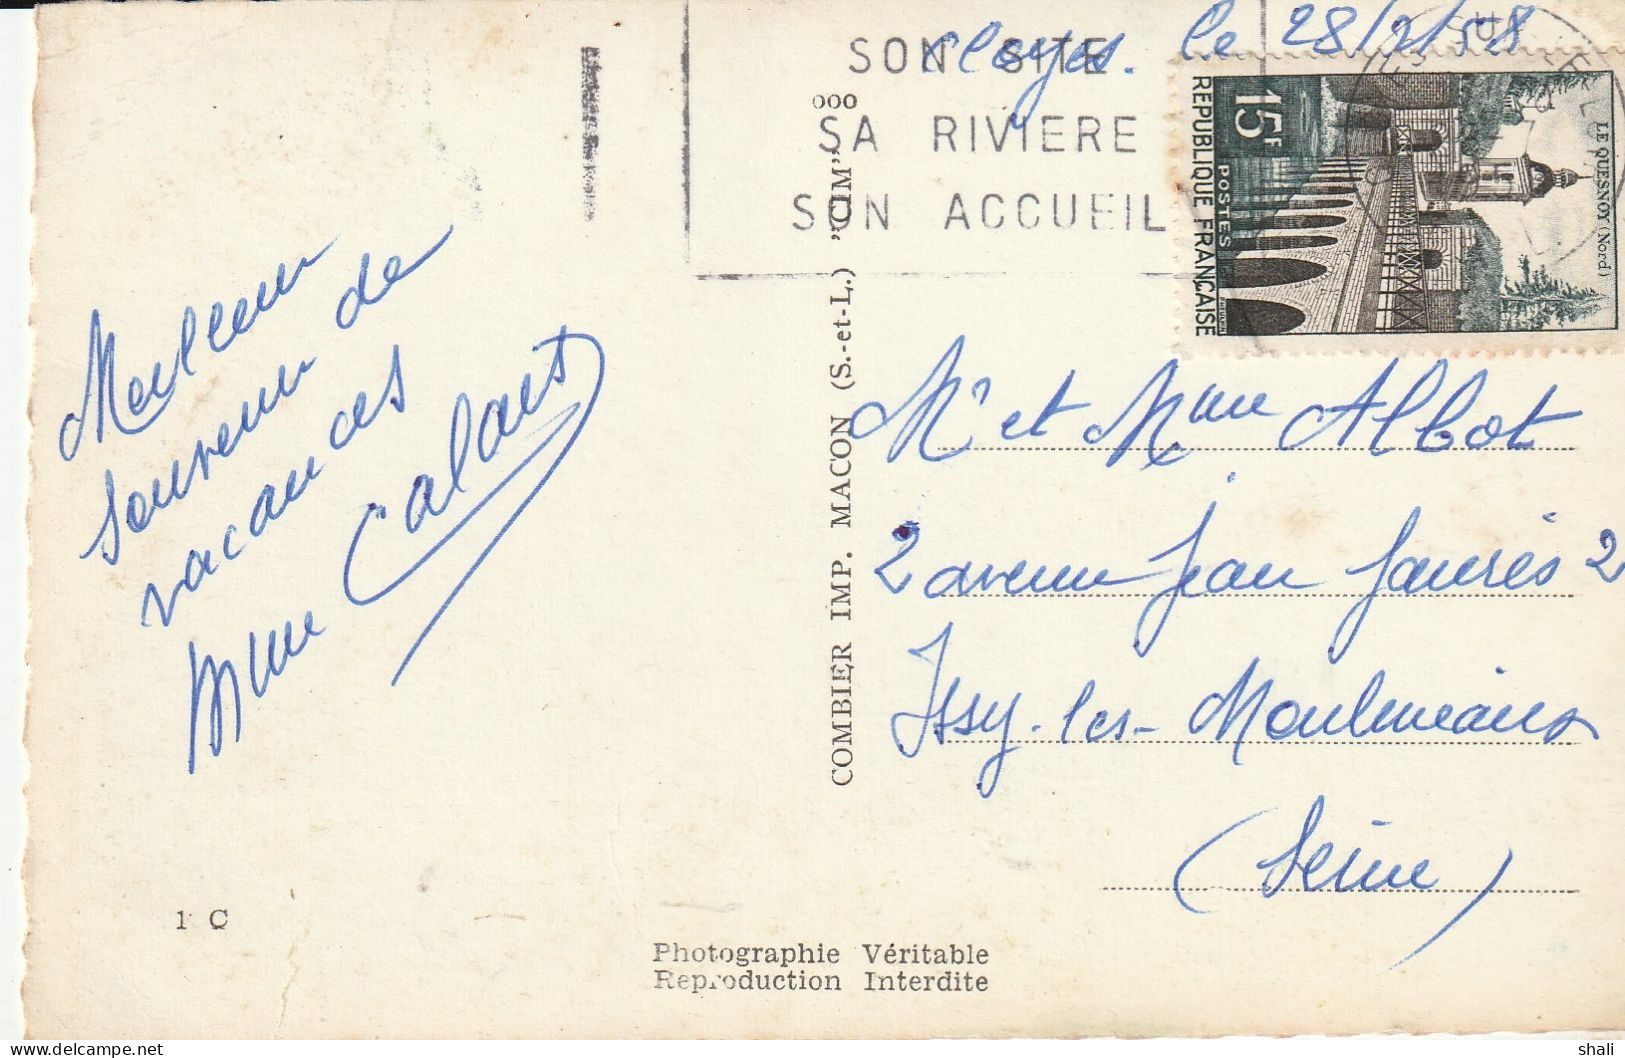 Cloyes. le 28/7/58
SON SITE
SA RIVIERE
SON ACCUEIL
SUR
15F
POSTES
REPUBLIQUE FRANÇAISE
LE QUESNOY (Nord)
Meilleur
souvenir de
vacances
Mme Calais
ooo
COMBIER IMP. MACON (S.-et-L.) "CIM"
Mr et Mme Albot
2 avenue Jean Jaurès 2
Issy-les-Moulineaux
(Seine)
1 C
Photographie Véritable
Reproduction Interdite
Shali